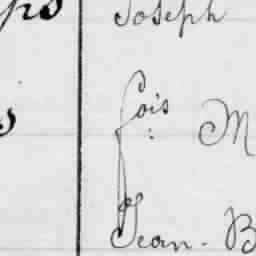 ps Joseph
s fois: M
Jean-B